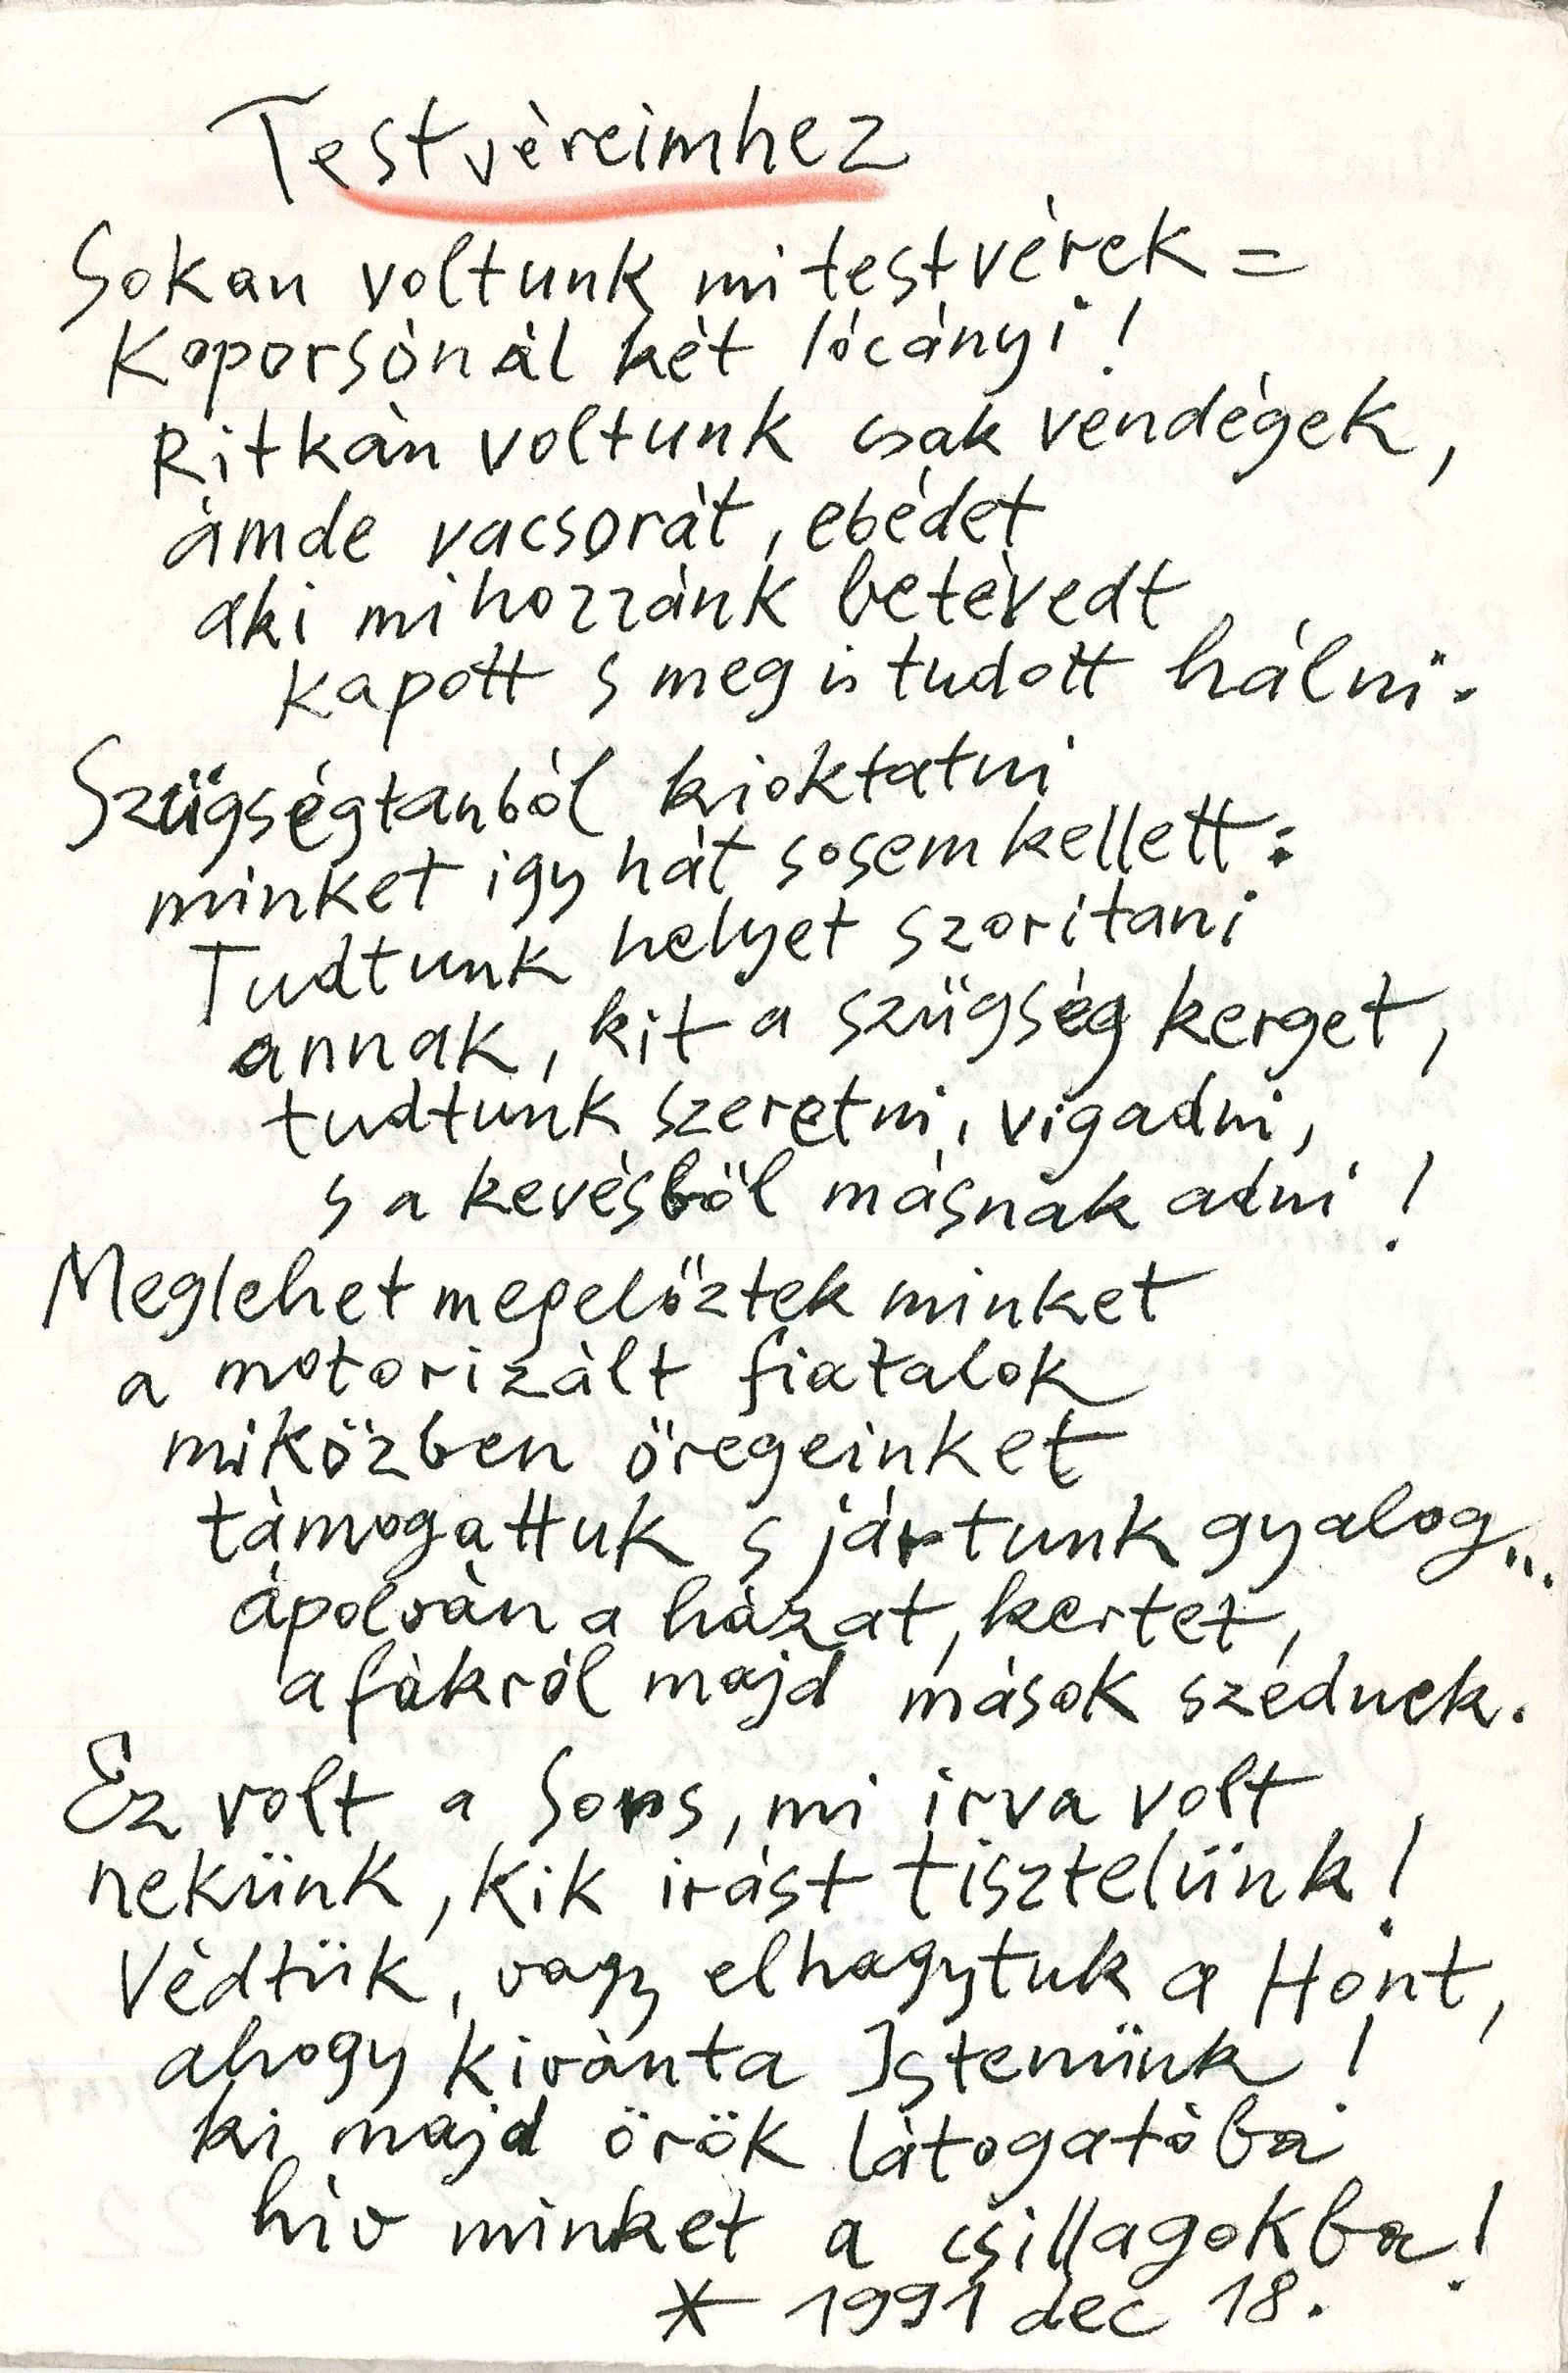 Testvéreimhez
Sokan voltunk mi testvérek =
Koporsónál két lócányi!
Ritkán voltunk csak vendégek,
ámde vacsorát, ebédet
aki mihozzánk betévedt
kapott s meg is tudott hálni.
Szügségtanból kioktatni
minket igy hát sosem kellett:
Tudtunk helyet szoritani
annak, kit a szügség kerget,
tudtunk szeretni, vigadni,
s a kevésből másnak adni!
Meglehet megelőztek minket
a motorizált fiatalok
miközben öregeinket
támogattuk s jártunk gyalog...
ápolván a házat, kertet,
a fákról majd mások szednek.
Ez volt a Sors, mi irva volt
nekünk, kik irást tisztelünk!
Védtük, vagy elhagytuk a Hont,
ahogy kivánta Istenünk!
ki majd örök látogatóba
hiv minket a csillagokba!
* 1991 dec 18.